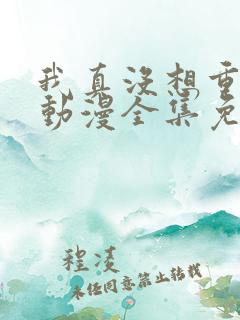 我真没想重
動漫全集免
程凌
未经同意禁止转载